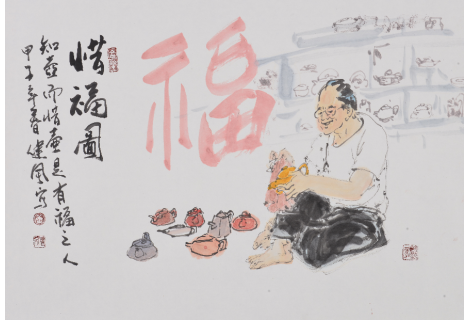 福
惜福圖
知壺而惜壺是有福之人
年春風寫